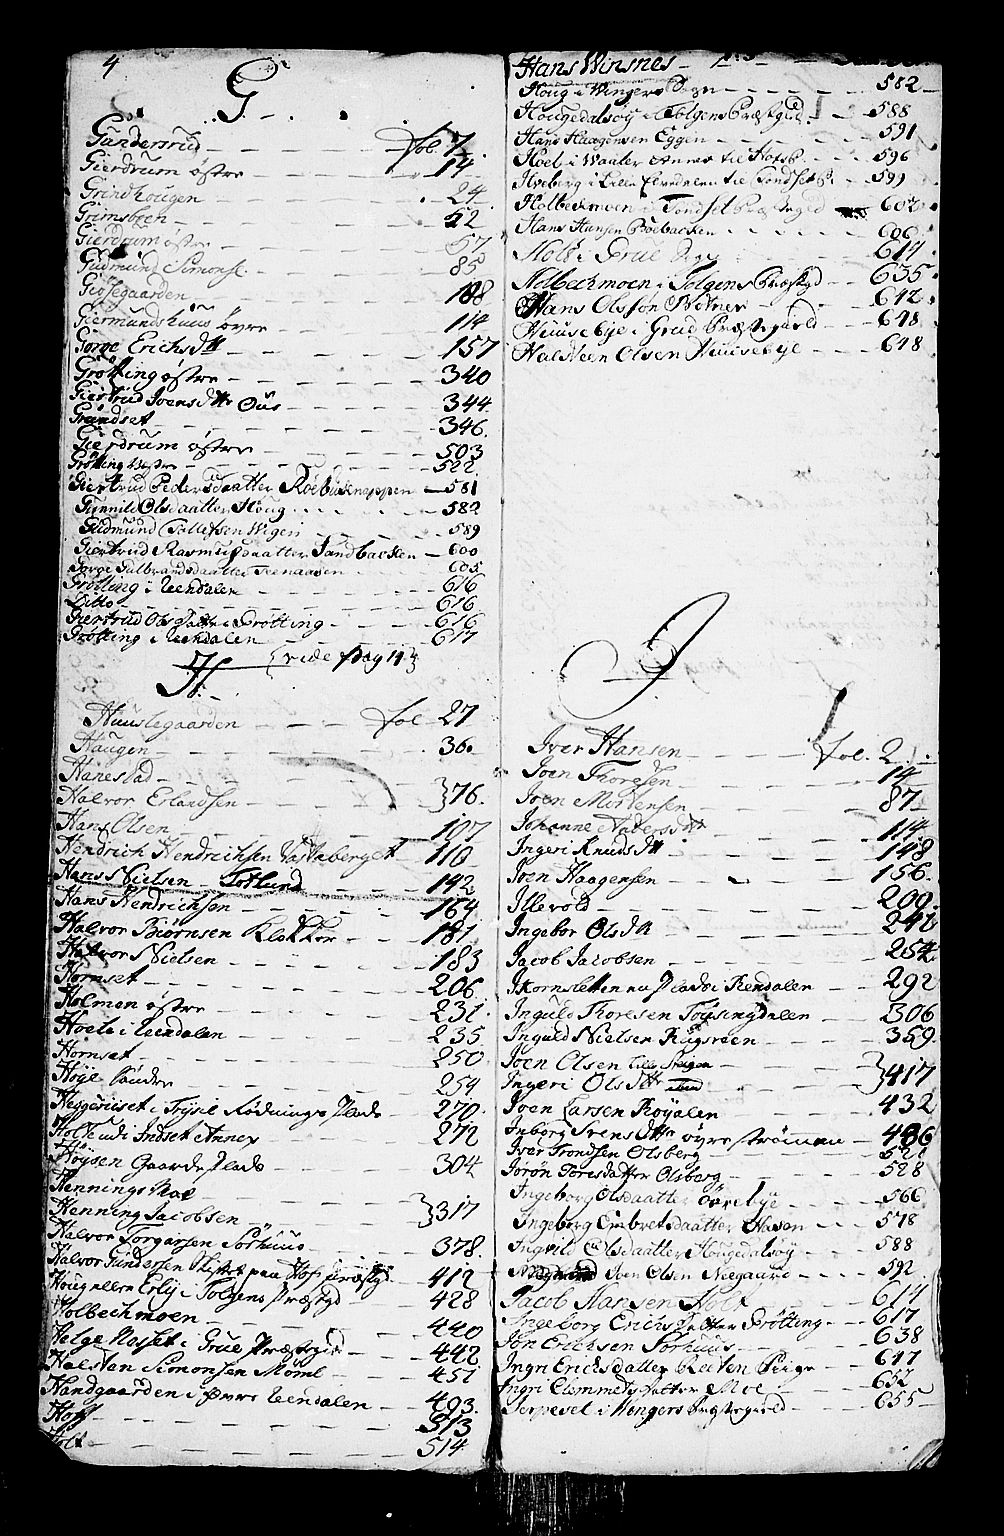 4
G.
Gundersrud - - - fol. 7
Gierdrum østre - - - 14.
Grindhougen - - - 24.
Grimsboen - - - 52
Gierdrum østre - - - 57
Gudmund Simons. - - - 85
Giosegaarden - - - 108
Giermundshuus øvre - - - 114
Gorge Erichsdtt - - - 157
Grøtting østre - - - 340
Giertrud Joensdttr Ous - - - 344.
Grundset - - - 346.
Gierdrum østre - - - 503
Grøtting Westre - - - 522
Giertrud Pedersdaatter Roebæknappen - 581
Gunnild Olsdaatter Houg - - - 582
Gudmund Tollefsen Wigen - - - 589
Giertrud Rasmusdaatter Sandbacken - 600
Gorge Gulbrandsdaatter Teenaasen - - - 605
Grøtting i Reendalen - - - 616
Ditto - - - 616
Giertrud Olsdatter Grøtting - - - 616
Grøtting i Reendalen - - - 617
H. {vide pag 11{
Huuslegaarden - - - fol 27
Haugen - - - 36.
Hanestad - - -
Halvor Erlandsen - - - }76.
Hans Olsen - - - 107
Hendrich Hendrichsen - - - 110
Hans Nielsen Totlund - - - 142
Hans Hendrichsen - - - 164
Halvor Biørnsen Klokker - - - 181
Halvor Nielsen - - - 183
Hornset - - - 206.
Holmen østre - - - 231.
Hoele i Reendalen - - - 235.
Hornset - - - 250
Høye søndre - - - 254
Heggeriiset i Trysil Rødnings Plads - 270.
Holte udi Indset Annex - - - 272
Høysen Gaards Plads - - - 304.
Hennings Moe - - -
Henning Jacobsen - - - }317
Halvor Torgersen Sørhuus - - - 378.
Halvor Gundersen paa Hofs præstgd - 412.
Houg ellen Erlij i Tolgens præstgd - - 428
Holbechmoen - - - 440
Helge Nosset i Grue Præstegield - - 442
Halsten Simonsen Moml - - - 451
Handgaarden i Øvre Reendalen - - - 493.
Hoff - - - 513
Holt - - - 514
Hans Winsnes - - -
Houg i Wingers Sogn - - - 582
Hougedalsøy i Tolgens Præstgied - - 588
Hans Haagensen Eggen - - - 591
Hoel i Waaler Annex til Hofs P. - - - 596
Hveberg i Lille Elvedalen til Tønsets P. - 599
Holbechmoen i Tønset Præstegield - 602.
Hans Hansen Bøebacken - - - 606
Holt i Grue Sogn - - - 614
Holbechmoen i Tolgens Præstgd - - 635
Hans Olssøn Botner - - - 642.
Huusebye i Grue Præstegield - - - 648.
Halsteen Olsen Huusebye - - - 648
J.
Iver Hansen - - - fol. 2.
Joen Thoresen - - - 14
Joen Mortensen - - - 87
Johanne Andersdtt - - - 114.
Ingeri Knudsdtt - - - 148
Joen Haagensen - - - 156.
Illevold - - - 209.
Ingebor Olsdtt - - - 242
Jacob Jacobsen - - - 254
Plads i Rendalen - - 292
Inguld Thoresen Tysingdalen - - - 306
Inguld Nielsen Rugsveen - - - 359.
Joen Olsen Lille Stugen - - -
Ingeri Olsdttr ibid - - - }417
Joen Larsen Røydlen - - - 432
Inborg Svensdttr øvre strømmen - 486
Iver Trondsen Olsberg - - - 521
Jørøn Toresdatter Olsberg - - - 528
Ingeborg Olsdaatter Øvrebye - - - 566
Ingeborg Embretsdaatter Aasen - - - 578
Ingvild Olsdaatter Hougedalsøy - - - 588
Joen Olsen Neegaard - - - 592
Jacob Hansen Holt - - - 614
Ingeborg Erichsdatter Grøtting - - - 617
Jon Erichsen Sørhuus - - - 638
Ingri Erichsdatter Reiten - - - 647
Ingri Clemmetsdatter Moe - - - 652
Jerpeset i Wingers Præstegield - - - 655